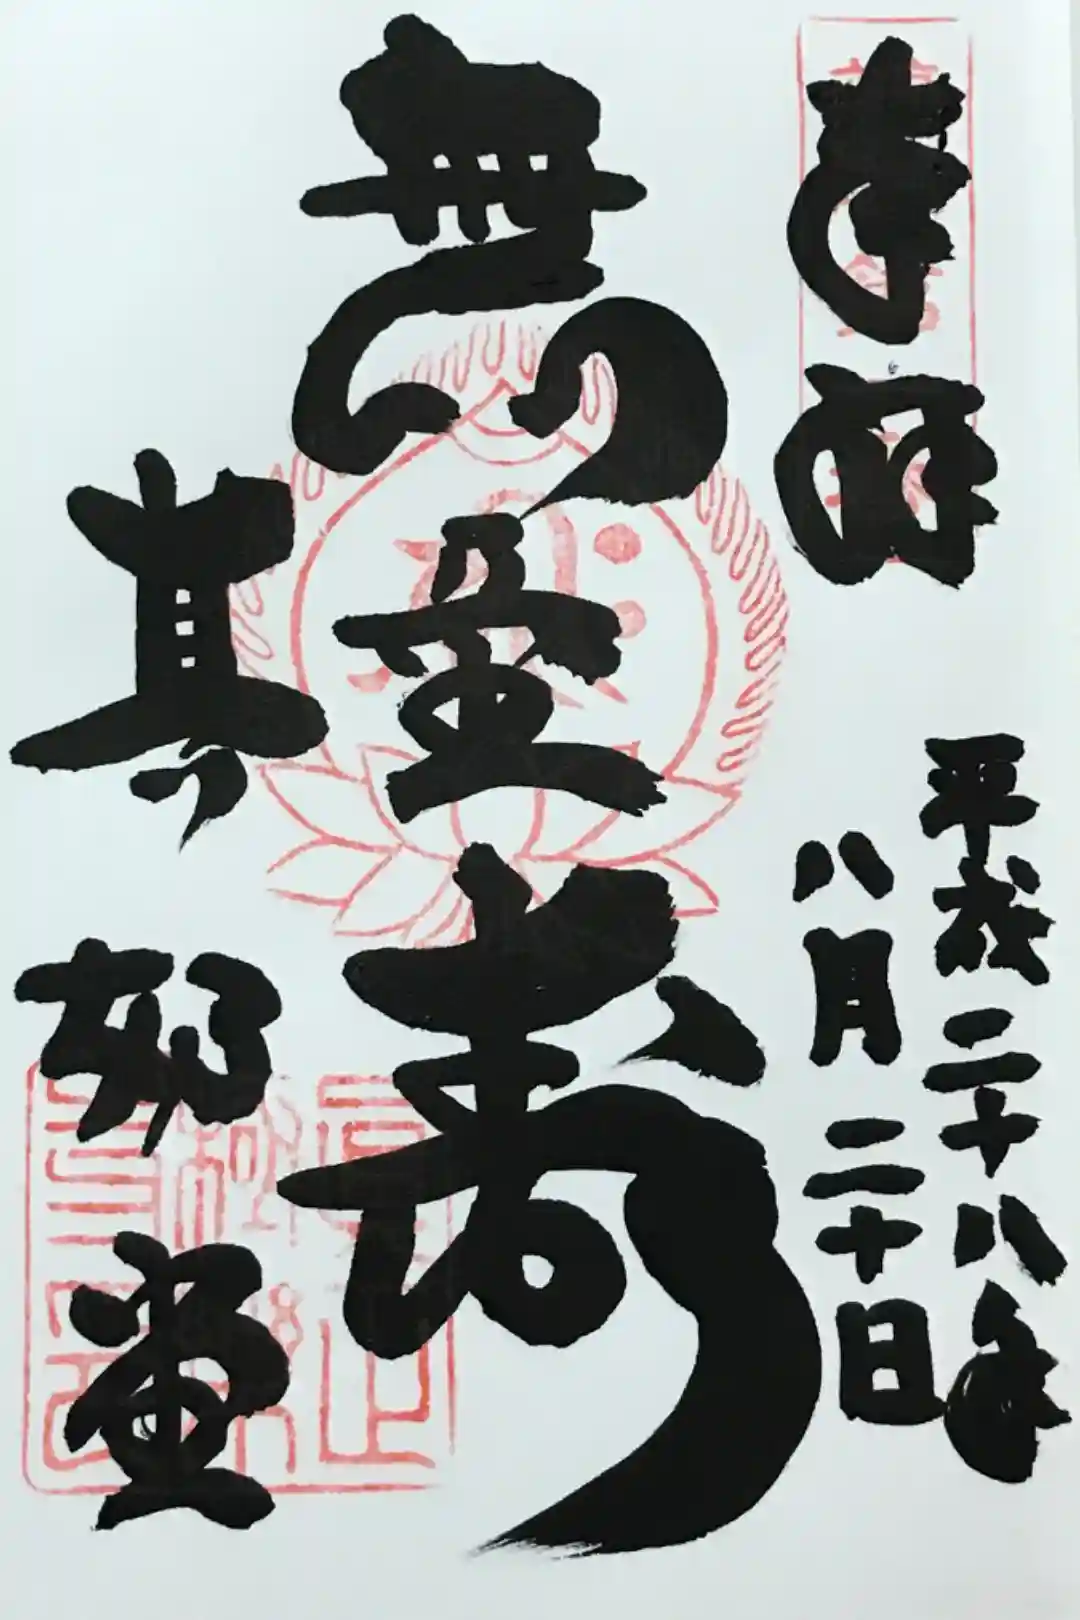 奉拝
平成二十八年
八月二十日
無量寿
真如堂